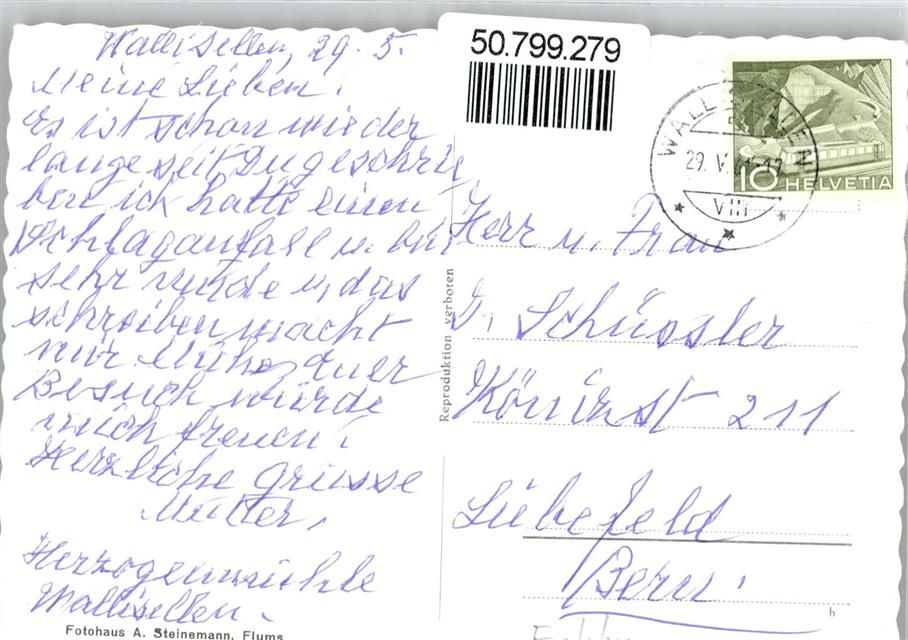 Wallisellen, 29. 5.
Meine Lieben!
Es ist schon wieder
lange seit Du geschrie
ben ich hatte einen
Schlaganfall u. bin
sehr müde u, das
schreiben macht
mir Mühe, Euer
Besuch würde
mich freuen!
Herzliche Grüsse
Mutter,
Herzogenmühle
Wallisellen.
Fotohaus A. Steinemann, Flums
Reproduktion verboten
50.799.279
WALLISELLEN
29. V.
VIII
10 HELVETIA
Herr u. Frau
G. Schüssler
Könizst 211
Liebefeld
Bern.
h